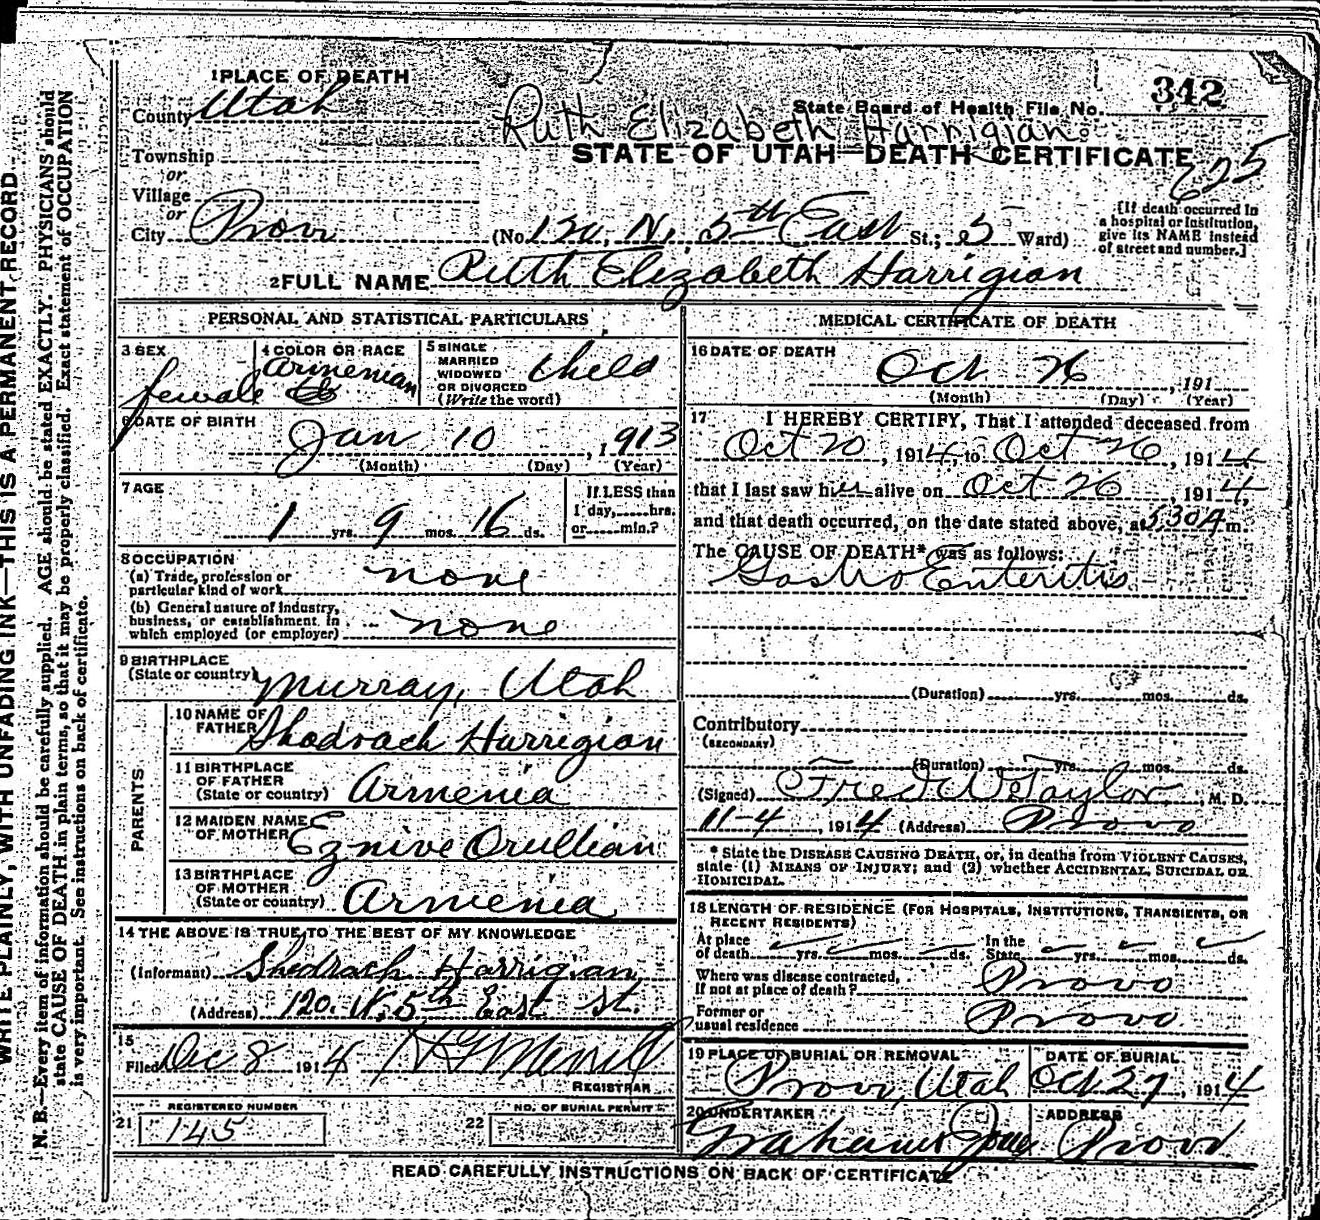 WRITE PLAINLY, WITH UNFADING INK—THIS IS A PERMANENT RECORD.
N. B.—Every item of information should be carefully supplied. AGE should be stated EXACTLY. PHYSICIANS should
state CAUSE OF DEATH in plain terms, so that it may be properly classified. Exact statement of OCCUPATION
is very important. See instructions on back of certificate.
1 PLACE OF DEATH
County Utah
State Board of Health File No. 342
Ruth Elizabeth Harrigian
STATE OF UTAH—DEATH CERTIFICATE
625
Township
or
Village
or
City Provo (No. 120, N, 5th East St.; 5 Ward)
[If death occurred in
a hospital or institution,
give its NAME instead
of street and number.]
2 FULL NAME Ruth Elizabeth Harrigian
PERSONAL AND STATISTICAL PARTICULARS
3 SEX
female
4 COLOR OR RACE
Armenian
5 SINGLE
MARRIED
WIDOWED
OR DIVORCED
(Write the word)
child
6 DATE OF BIRTH
Jan 10, 1913
(Month) (Day) (Year)
7 AGE
1 yrs. 9 mos. 16 ds.
If LESS than
1 day, hrs.
or min.?
8 OCCUPATION
(a) Trade, profession or
particular kind of work none
(b) General nature of industry,
business, or establishment in
which employed (or employer) none
9 BIRTHPLACE
(State or country) Murray, Utah
PARENTS
10 NAME OF
FATHER Shadrach Harrigian
11 BIRTHPLACE
OF FATHER
(State or country) Armenia
12 MAIDEN NAME
OF MOTHER Eznive Orullian
13 BIRTHPLACE
OF MOTHER
(State or country) Armenia
14 THE ABOVE IS TRUE TO THE BEST OF MY KNOWLEDGE
(Informant) Shedrach Harrigian
(Address) 120. N, 5th East St.
15
Filed Dec 8 1914 Merrell
REGISTRAR
REGISTERED NUMBER
21 145
NO. OF BURIAL PERMIT
22
MEDICAL CERTIFICATE OF DEATH
16 DATE OF DEATH
Oct 26, 191
(Month) (Day) (Year)
17 I HEREBY CERTIFY, That I attended deceased from
Oct 20, 1914, to Oct 26, 1914
that I last saw her alive on Oct 26, 1914,
and that death occurred, on the date stated above, at 530A m.
The CAUSE OF DEATH* was as follows:
Gastro Enteritis
(Duration) yrs. mos. ds.
Contributory
(SECONDARY)
(Duration) yrs. mos. ds.
(Signed) Fred W Taylor, M. D.
11-4, 1914 (Address) Provo
* State the DISEASE CAUSING DEATH, or, in deaths from VIOLENT CAUSES,
state (1) MEANS OF INJURY; and (2) whether ACCIDENTAL, SUICIDAL OR
HOMICIDAL.
18 LENGTH OF RESIDENCE (FOR HOSPITALS, INSTITUTIONS, TRANSIENTS, OR
RECENT RESIDENTS)
At place
of death yrs. mos. ds. In the
State yrs. mos. ds.
Where was disease contracted,
If not at place of death? Provo
Former or
usual residence Provo.
19 PLACE OF BURIAL OR REMOVAL
Provo, Utah
DATE OF BURIAL
Oct 27, 1914
20 UNDERTAKER
ADDRESS
Provo
READ CAREFULLY INSTRUCTIONS ON BACK OF CERTIFICATE